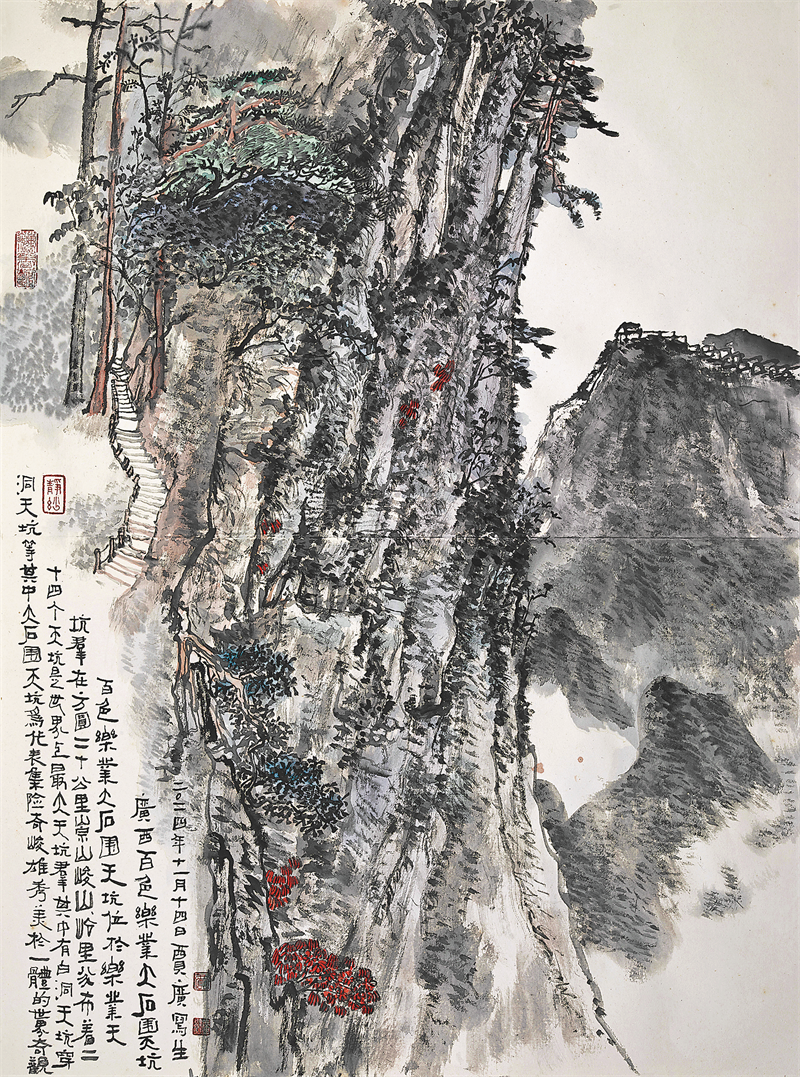 二〇二四年十一月十四日廣寫生
廣西百色樂業大石圍天坑
百色樂業大石圍天坑位於樂業天
坑羣在方圓二十公里崇山峻岭里分布着二
十四个天坑是世界上最大天坑羣其中有白洞天坑穿
洞天坑等其中大石圍天坑為代表集险奇峻雄秀美於一體的世界奇觀
靜妙